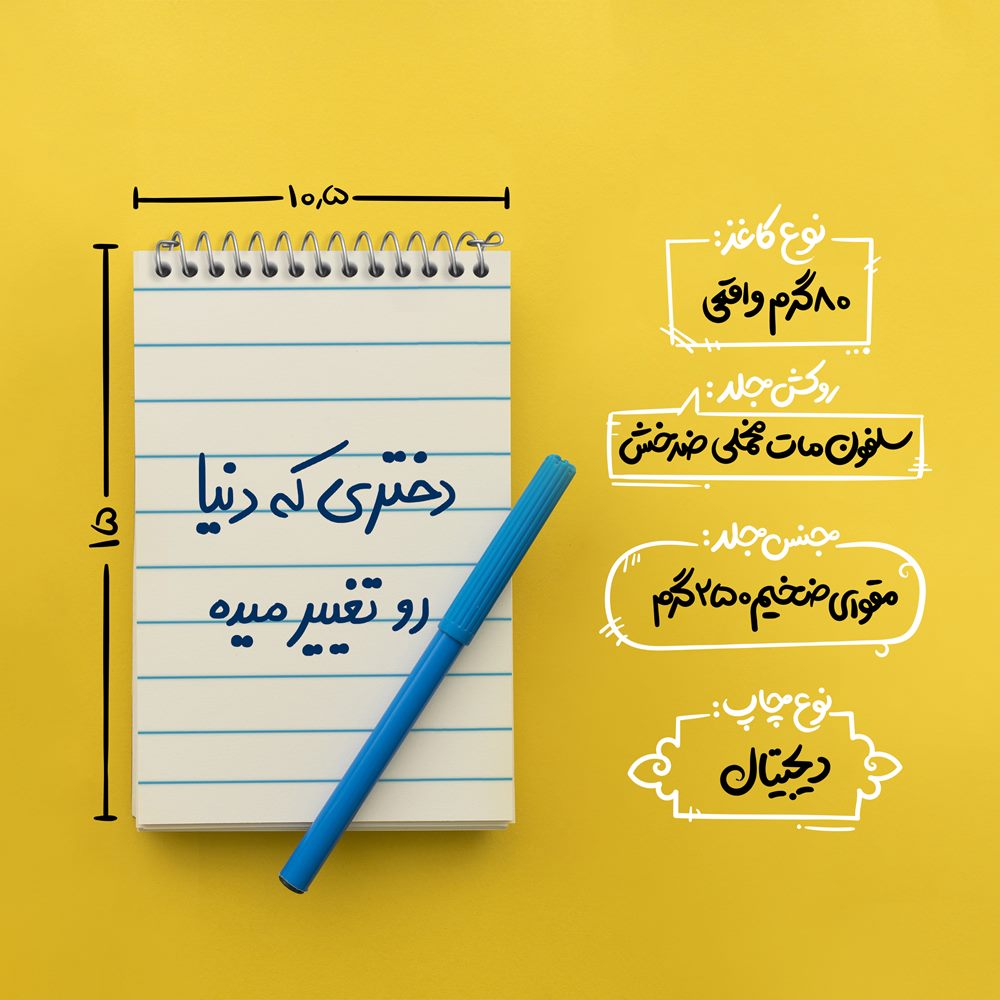 ۱۰٫۵
۱۵
دختری که دنیا
رو تغییر میده
نوع کاغذ:
۸۰گرم واقعی
روکش جلد:
سلفون مات مخملی ضدخش
جنس جلد:
مقوای ضخیم ۲۵۰گرم
نوع چاپ:
دیجیتال